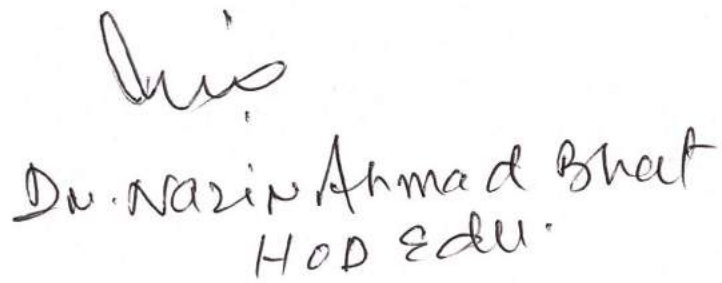 Dr. Nazir Ahmad Bhat
HOD Edu.